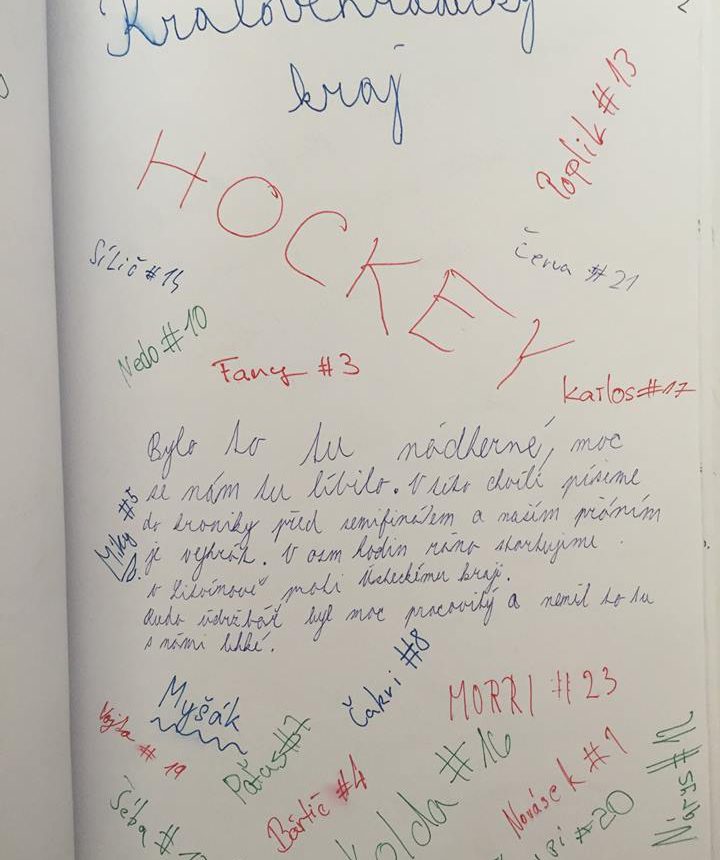 Královéhradecký
kraj
HOCKEY
Poplik #13
Červa #21
Sílič #14
Nedo #10
Fany #3
Karlos #17
Bylo to tu nádherné, moc
se nám tu líbilo. V této chvíli píšeme
do kroniky před semifinálem a naším přáním
je vyhrát. V osm hodin ráno startujeme
v Litvínově proti Ústeckému kraji.
údržbář byl moc pracovitý a neměl to tu
s námi lehké.
Miky #5
Čákri #8
Myšák
MORRI #23
Vojta #19
Pařas #7
Bártič #4
#16
Novásek #9
Nýrys #12
Šéba
#20